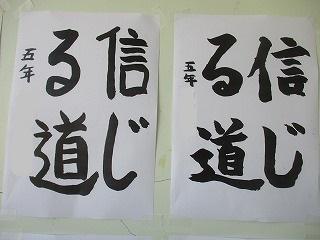 信じ
る道
五年
信じ
る道
五年